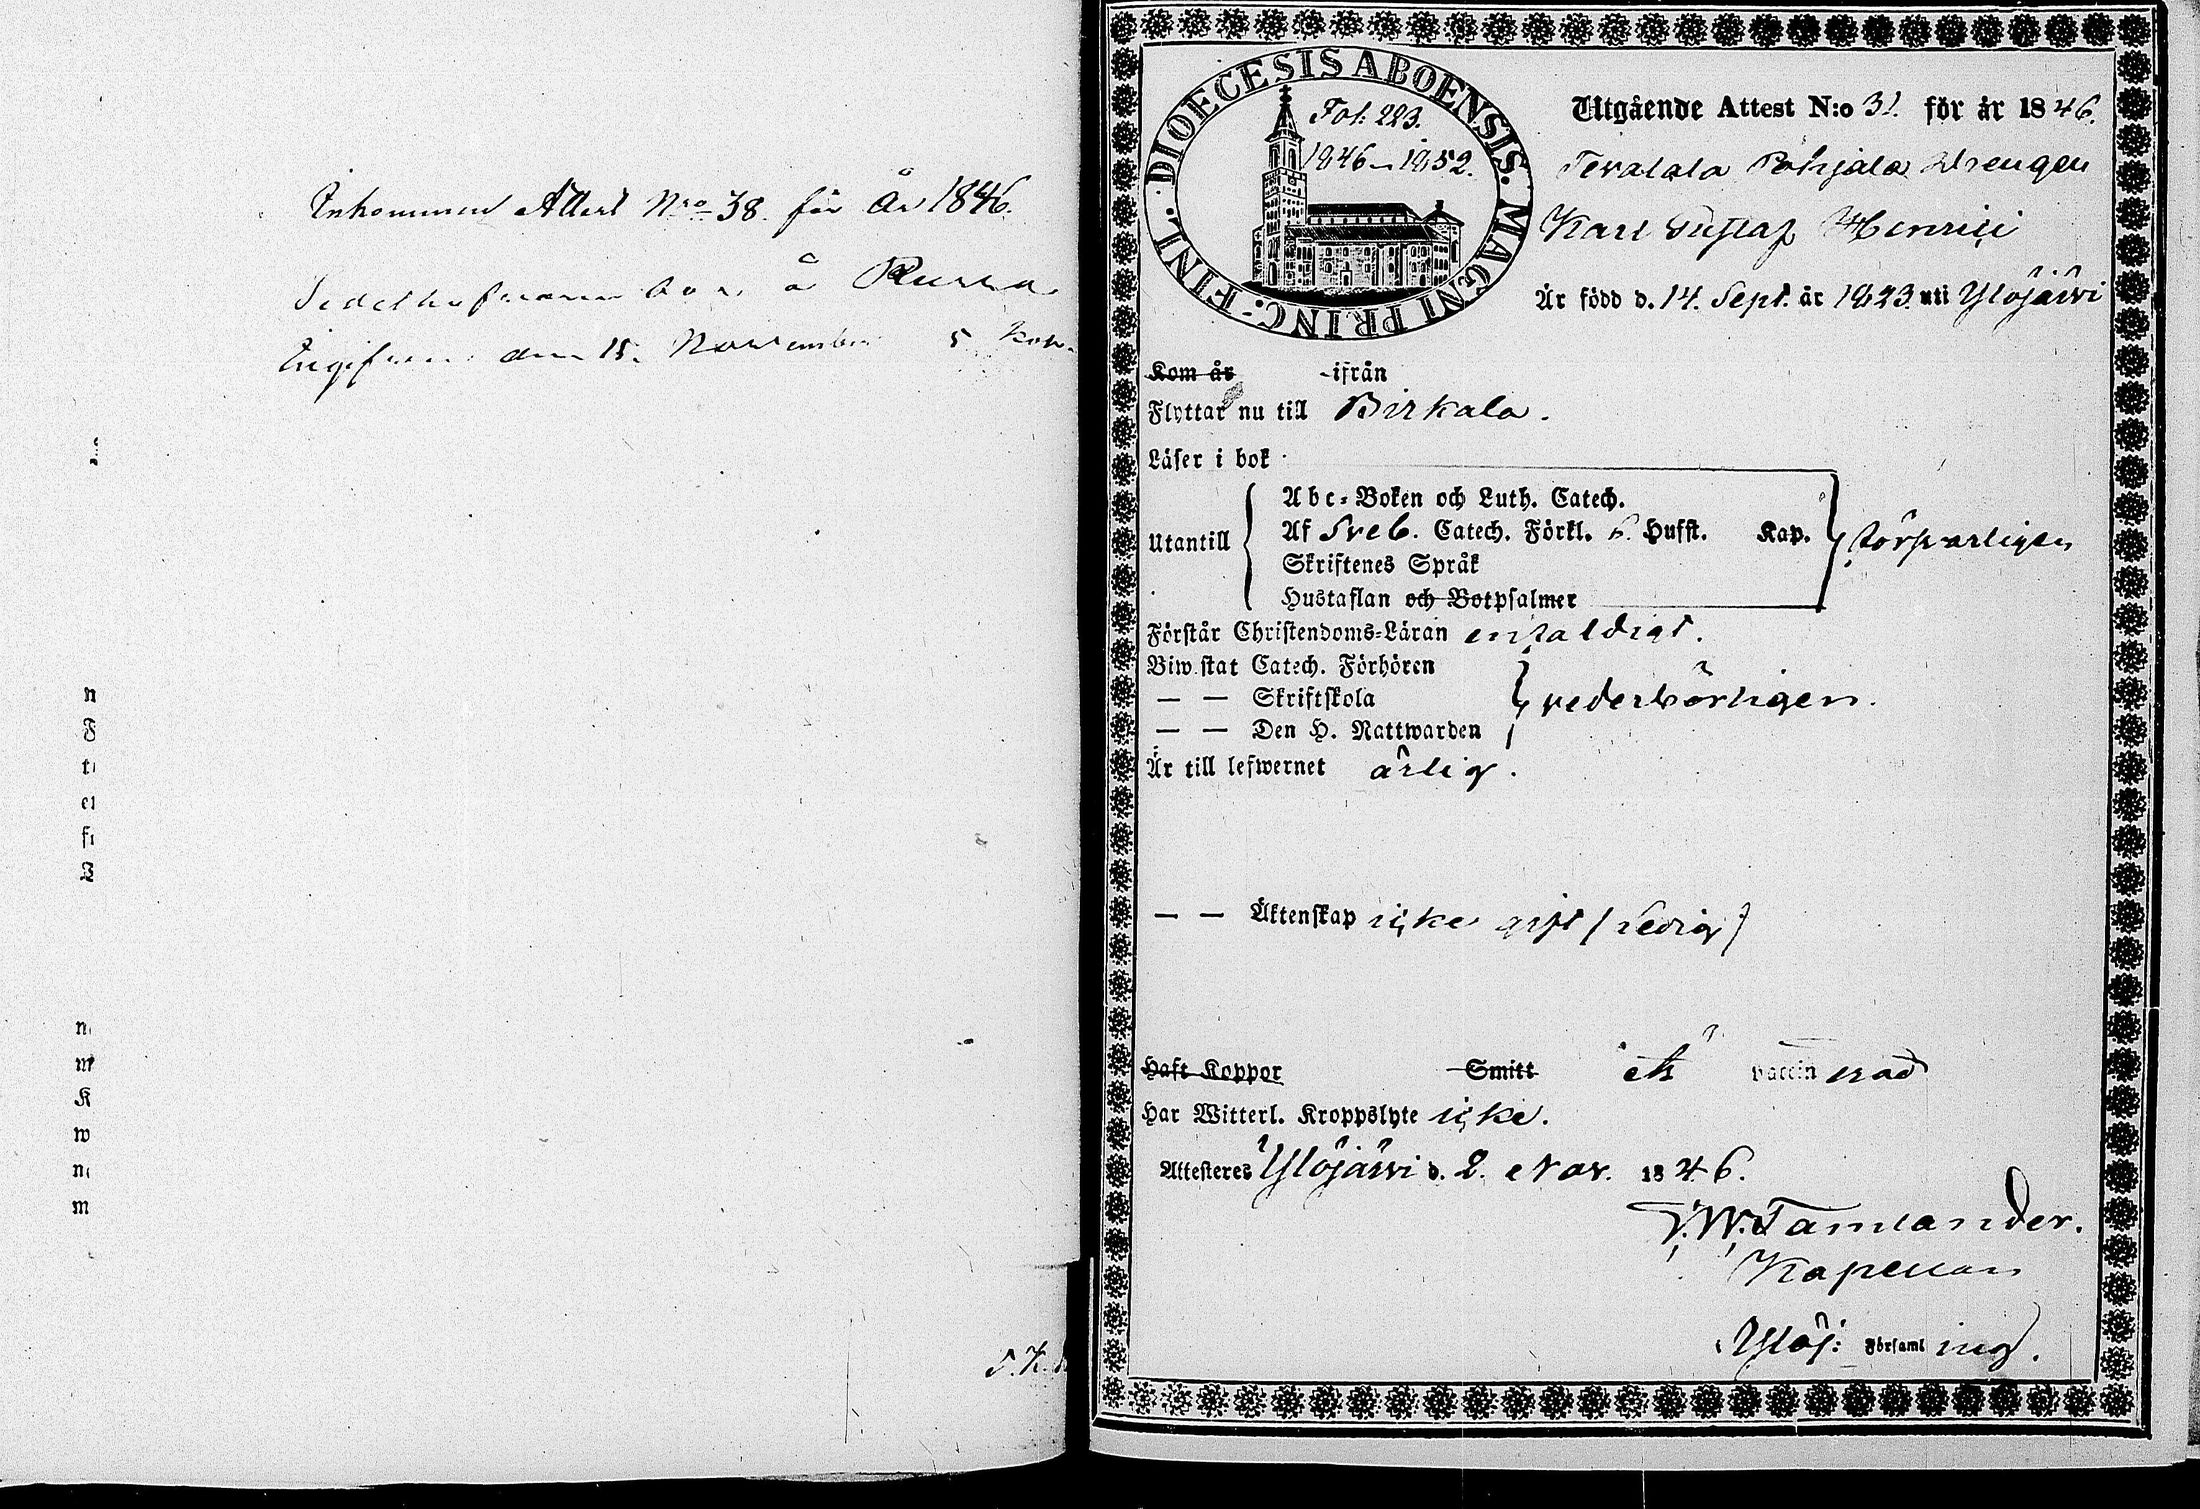 Inkommen Attest Nro 38. för År 1846.
å
den 15. November 5
n
F
n
m
K
w
m
DIOECESIS ABOENSIS. MAGNI PRINC: FINL.
Fol. 223.
1846–1852.
Utgående Attest N:o 31. för år 1846.
Pohjala Drengen
Karl Gustaf Henrici
Är född d. 14. Sept. år 1823. uti Ylöjärvi
Kom år ifrån
Flyttar nu till Birkala.
Läser i bok
Abc-Boken och Luth. Catech.
Utantill Af Sveb. Catech. Förkl. 6. Hufst. Kap. försvarligen
Skriftenes Språk
Hustaflan och Botpsalmer
Förstår Christendoms-Läran enfaldigt.
Biwistat Catech. Förhören
— — Skriftskola vederbörligen.
— — Den H. Nattwarden
Är till lefwernet ärlig.
— — Äktenskap icke gift (ledig)
Haft Koppor Smitt vaccinerad
Har Witterl. Kroppslyte icke.
Attesteres Ylöjärvi d. 2. Nov. 1846.
Tamlander.
Kapellan
Ylöj: Församling.